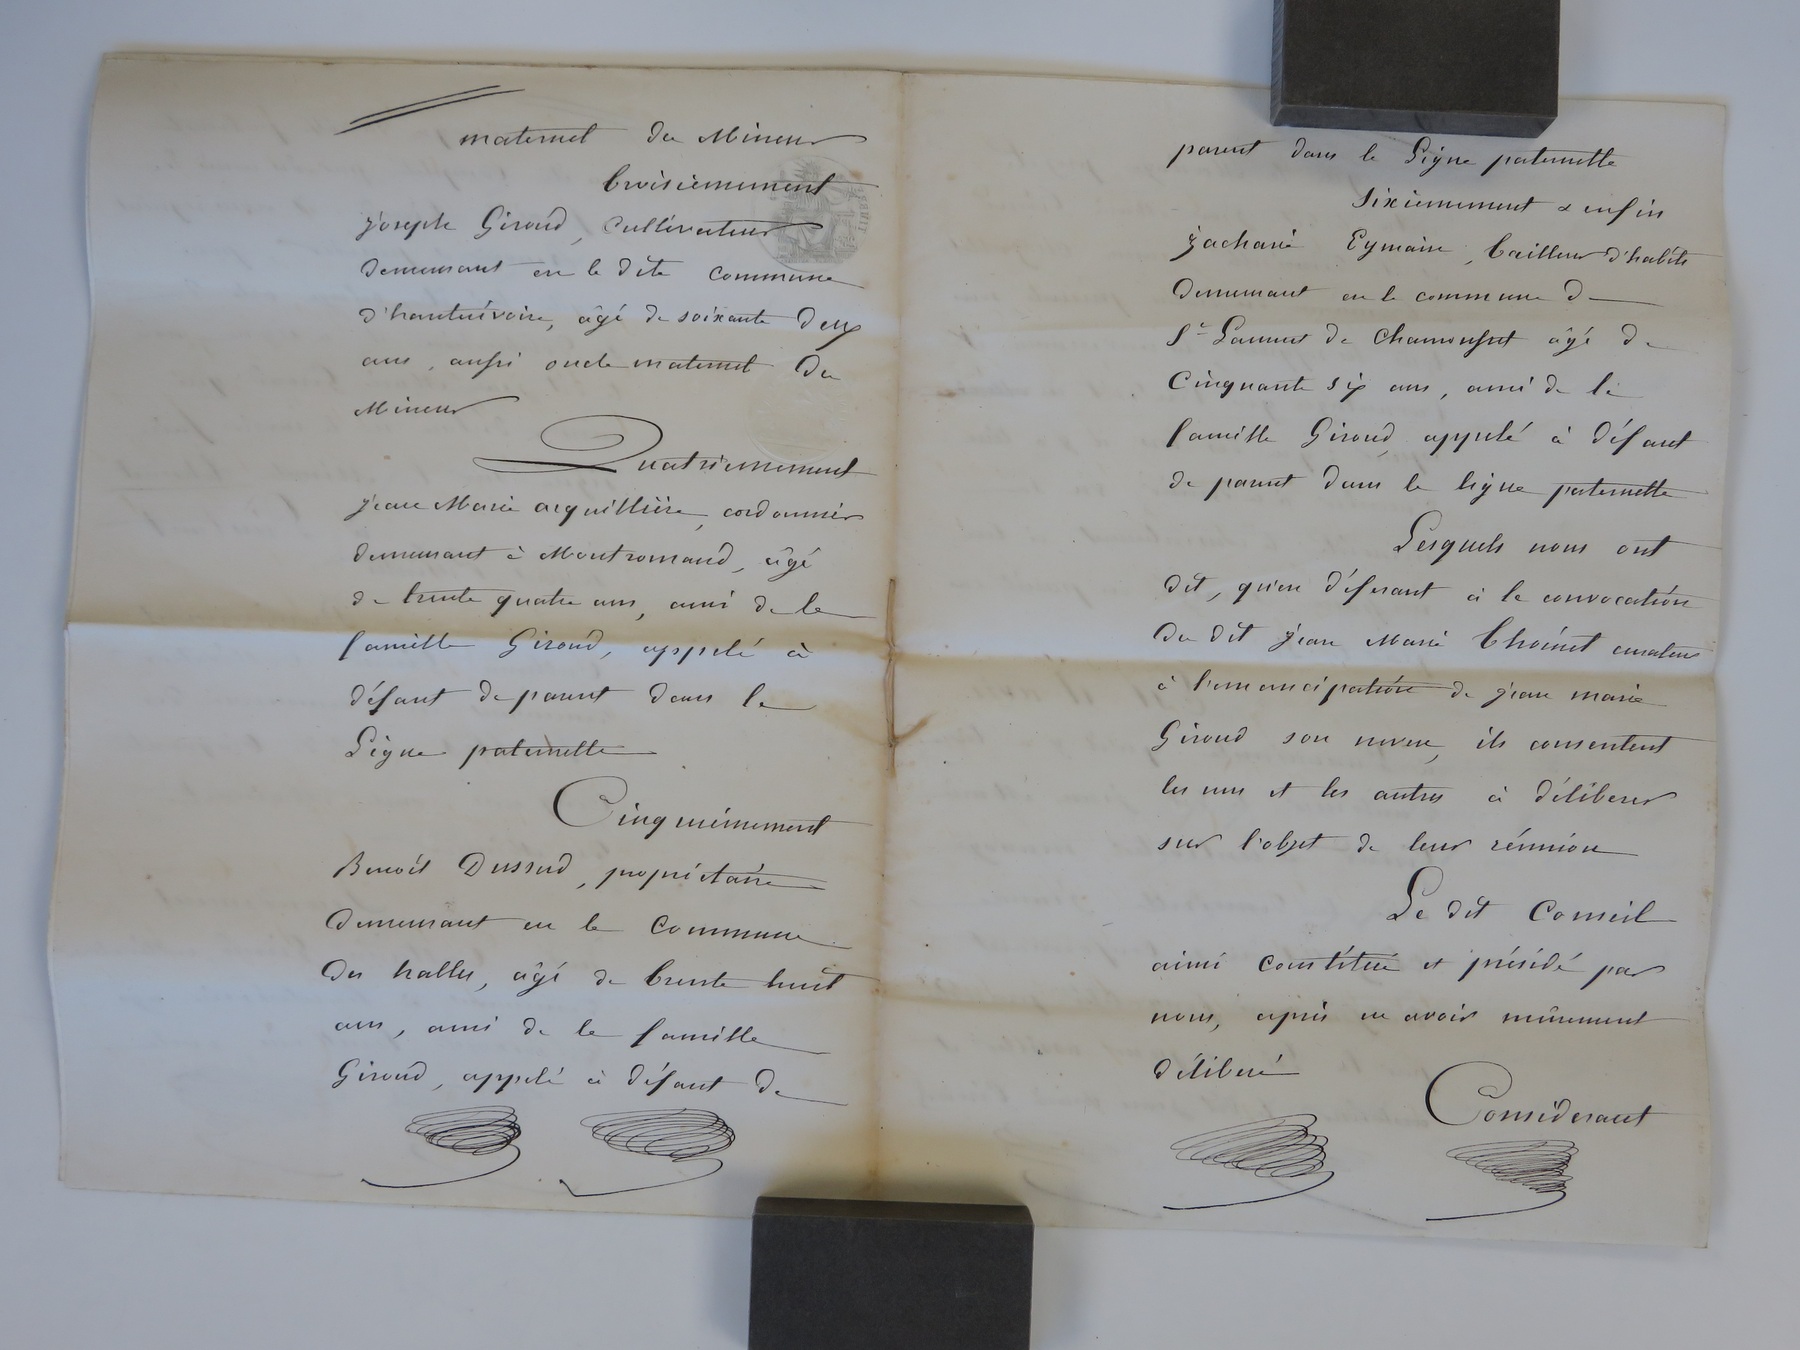 maternel du Mineur
troisiemement
joseph Giroud, Cultivateur
demeurant en la dite commune
d'hauterivoire, âgé de soixante deux
ans, aussi oncle maternel du
Mineur
Quatriemement
jean Marie arquillière, cordonnier
demeurant à Montromand, âgé
de trente quatre ans, ami de la
famille Giroud, appelé à
défaut de parent dans la
Ligne paternelle
Cinquiémement
Benoît Dussud, propriétaire
demeurant en la commune
des halles, âgé de trente huit
ans, ami de la famille
Giroud, appelé à défaut de
parent dans la Ligne paternelle
Sixiemement & enfin
zacharie Eymain, tailleur d'habits
demeurant en la commune de
St Laurent de Chamousset âgé de
Cinquante six ans, ami de la
famille Giroud, appelé à défaut
de parent dans la ligne paternelle
Lesquels nous ont
dit, qu'en déferant à la convocation
du dit jean Marie Thoinet curateur
à l'emancipation de jean marie
Giroud son neveu, ils consentent
les uns et les autres à déliberer
sur l'objet de leur réunion
Le dit Conseil
ainsi constitué et présidé par
nous, après en avoir mûrement
déliberé
Considerant